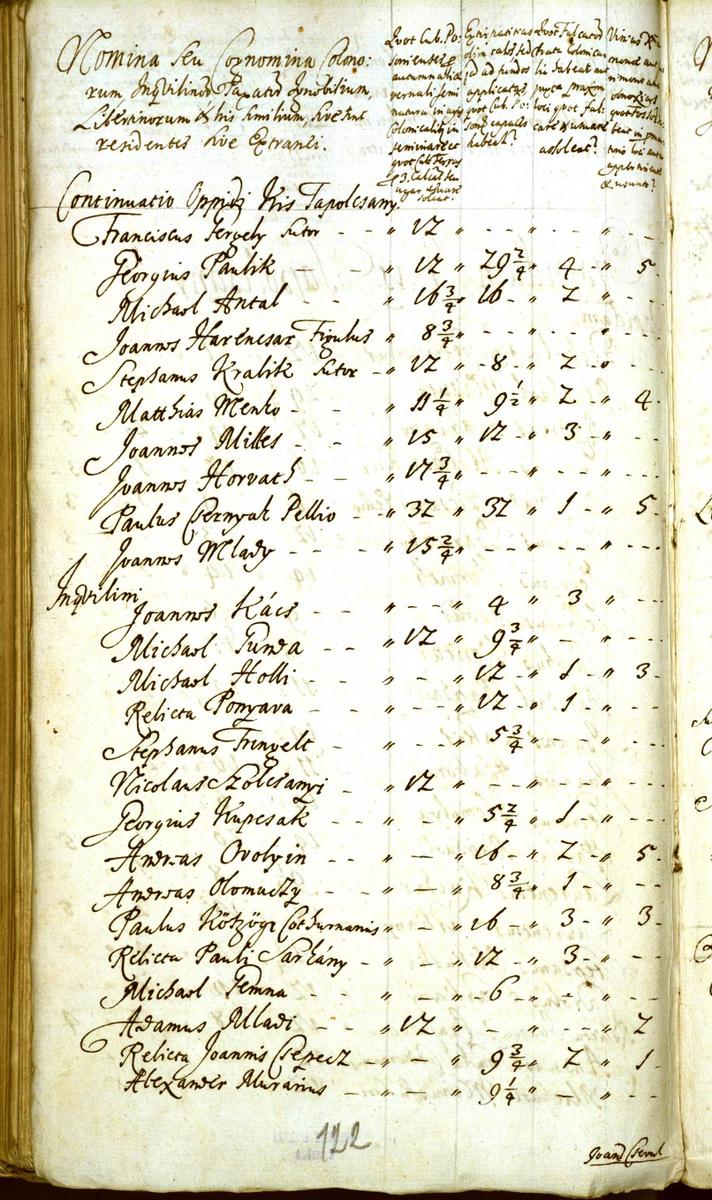 Nomina seu Cognomina Colono:
rum Inqvilinor Taxator Ignobilium,
Libertinorum & his similium, sive sint
residentes sive Extranei.
Quot Cub. Po:
soniensés
autumnali &
vernali semi
natura in agr
Colonicalib, in
seminare
quot Cub.
Extirpatitias
olim cales
sed ad fundos
applicatas
quot Cub. Po:
son. capaces
habeat?
Quot Falcator
Prata Colonica
lia habeat aut
juxta praxim
loci quot fal:
care & umare
asoleat?
Vineas
Continuatio Oppidi Kis Tapolcsany.
Franciscus Gergely Sutor - - " 12 " - - " - - " - -
Georgius Paulik - - " 12 " 29 2/4 " 4 - " 5 -
Michael Antal - - " 16 3/4 " 16 - " 2 " - -
Joannes Harencsar Figulus " 8 3/4 " - - " - - " - -
Stephanus Kralik Sutor - " 12 " - 8 - " 2 - " - -
Matthias Menko - - " 11 1/4 " 9 1/2 " 2 - " 4 -
Joannes Milles - - " 15 " 12 - " 3 - " - -
Joannes Horvath - - " 17 3/4 " - - " - - " - -
Paulus Csernyak Pellio - " 32 " 32 " 1 - " 5 -
Joannes Mlady - - " 15 2/4 " - - " - - " - -
Inqvilini
Joannes Kács - - " - - " 4 " 3 - " - -
Michael Tunda - - " 12 " 9 3/4 " - " - -
Michael Holli - - " - " 12 - " 1 - " 3
Relicta Ponyava - - " - - " 12 - " 1 - " - -
Stephanus Fringelt - " - - " 5 3/4 " - - " - -
Nicolaus Szolcsanyi - " 12 " - - " - - " - -
Georgius Kupcsak - " - " 5 2/4 " 1 - " - -
Andreas Ovolyin - - " - " 16 - " 2 - " 5 -
Andreas Olomuczy - - " - " 8 3/4 " 1 - " - -
Paulus Kötzögi Cothurnarius " - " 16 - " 3 - " 3 -
Relicta Pauli Sarkány - " - " 12 - " 3 - " - -
Michael Temna - - " - " - 6 - " - " - -
Adamus Mladi - - " 12 " - " - - " 2
Relicta Joannis Cseprecz - " - " 9 3/4 " 2 " 1 -
Alexander Murarius - " - " 9 1/4 " - " - -
122